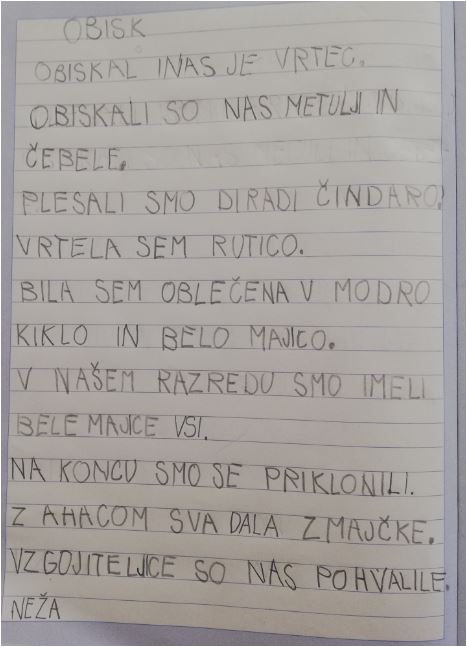 OBISK
OBISKAL INAS JE VRTEC.
OBISKALI SO NAS METULJI IN
ČEBELE.
PLESALI SMO DIRADI ČINDARO.
VRTELA SEM RUTICO.
BILA SEM OBLEČENA V MODRO
KIKLO IN BELO MAJICO.
V NAŠEM RAZREDU SMO IMELI
BELE MAJICE VSI.
NA KONCU SMO SE PRIKLONILI.
Z AHACOM SVA DALA ZMAJČKE.
VZGOJITELJICE SO NAS POHVALILE.
NEŽA